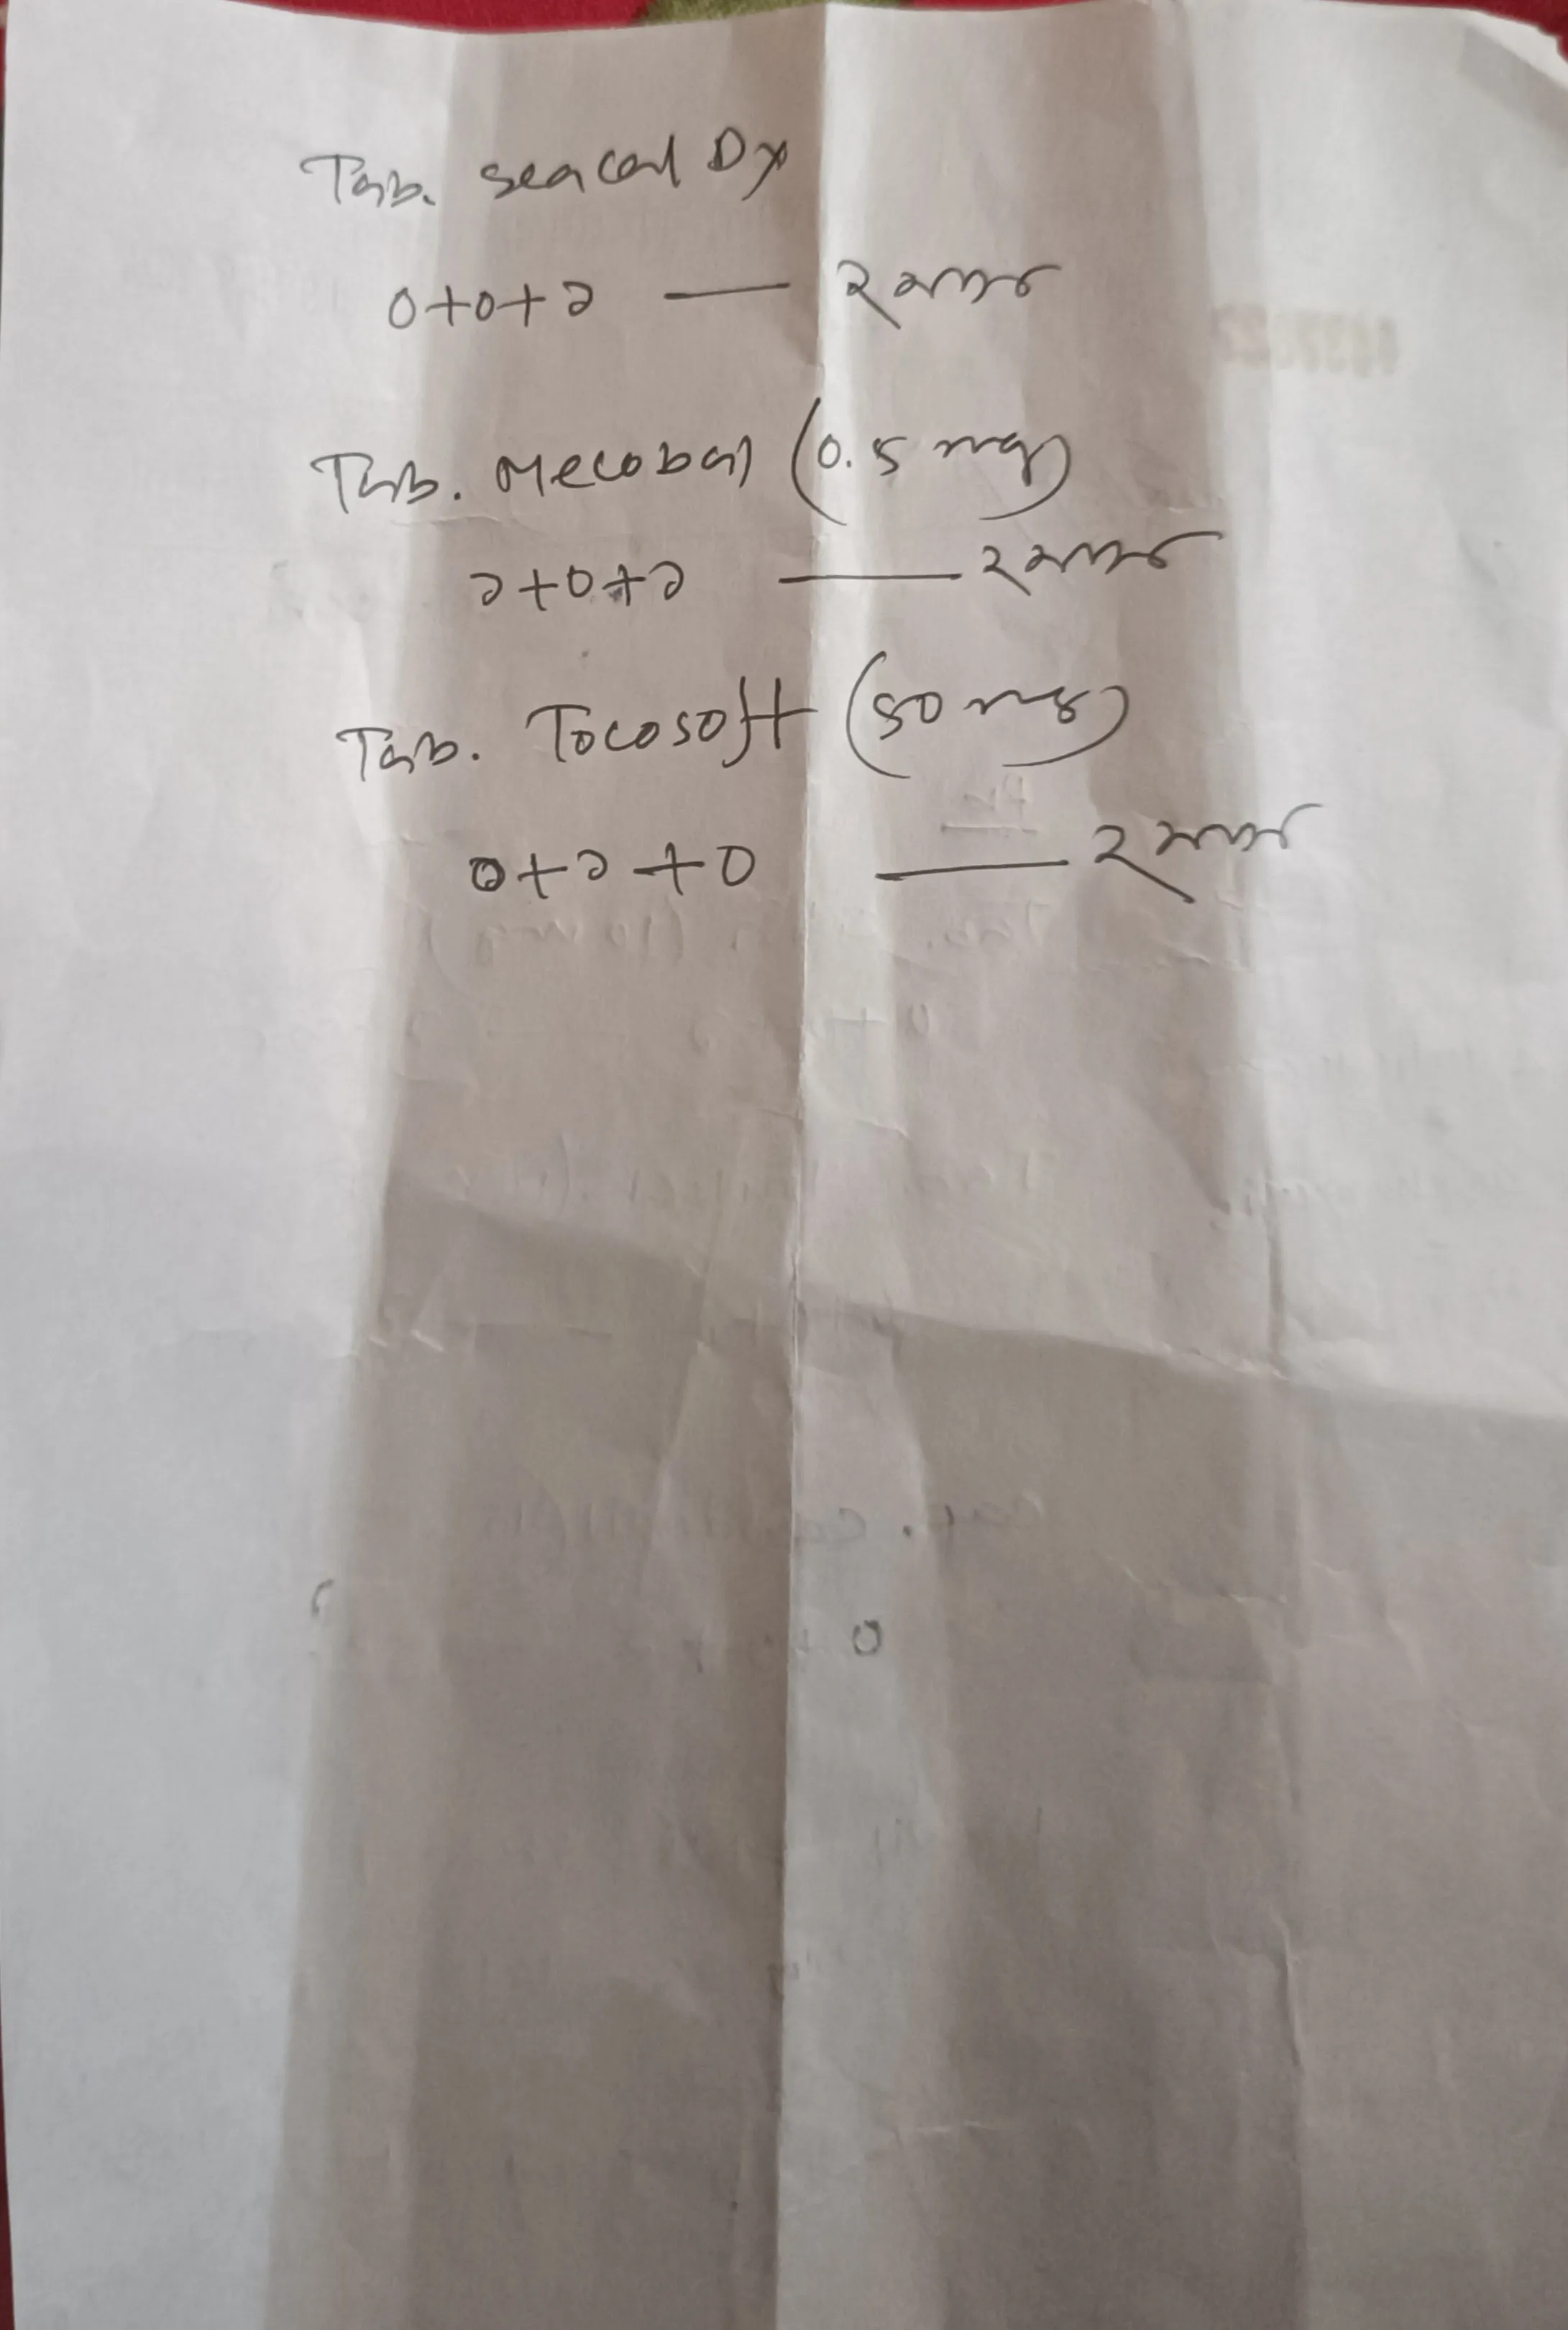 Tab. seacal Dx
0+0+১ — ২ মাস
Tab. Mecobal (0.5 mg)
১+0+১ — ২ মাস
Tab. Tocosoft (50 mg)
0+১+0 — ২ মাস